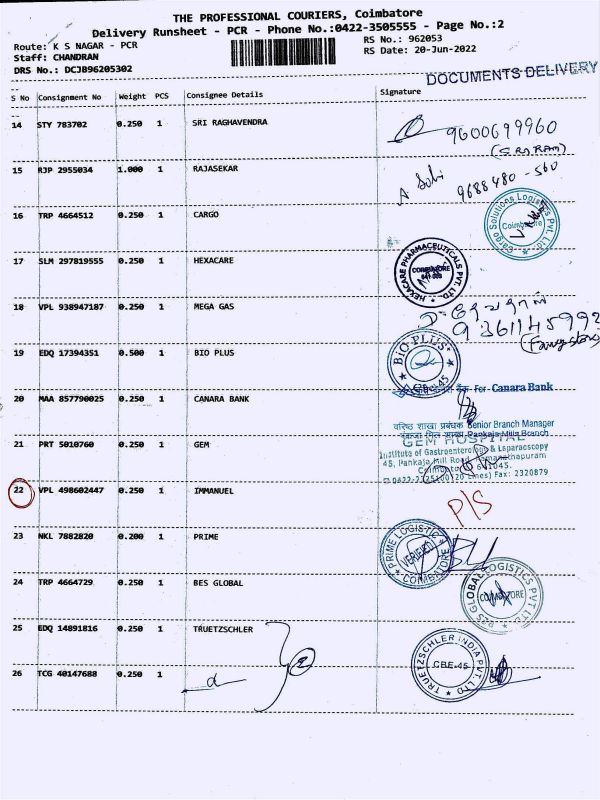 THE PROFESSIONAL COURIERS, Coimbatore
Delivery Runsheet - PCR - Phone No.:0422-3505555 - Page No.:2
Route: K S NAGAR - PCR
RS No.: 962053
Staff: CHANDRAN
RS Date: 20-Jun-2022
DRS No.: DCJB96205302
DOCUMENTS DELIVERY
S No Consignment No Weight PCS Consignee Details Signature
14 STY 783702 0.250 1 SRI RAGHAVENDRA
9600699960
(SRI RAM)
15 RJP 2955034 1.000 1 RAJASEKAR
9688480-560
16 TRP 4664512 0.250 1 CARGO
Cargo Solutions Logistics PVT. Ltd.
Coimbatore
17 SLM 297819555 0.250 1 HEXACARE
HEXACARE PHARMACEUTICALS PVT. LTD.
COIMBATORE
18 VPL 938947187 0.250 1 MEGA GAS
9361145992
19 EDQ 17394351 0.500 1 BIO PLUS
BIO PLUS
CBE-45
For Canara Bank
20 MAA 857790025 0.250 1 CANARA BANK
वरिष्ठ शाखा प्रबंधक Senior Branch Manager
Pankaja Mills Branch
21 PRT 5010760 0.250 1 GEM
GEM HOSPITAL
Institute of Gastroenterology & Laparoscopy
45, Pankaja Mill Road, Ramanathapuram
Coimbatore - 641045.
0422-2325100 (20 Lines) Fax: 2320879
22 VPL 498602447 0.250 1 IMMANUEL
P/S
23 NKL 7882820 0.200 1 PRIME
PRIME LOGISTICS
VERIFIED
COIMBATORE
24 TRP 4664729 0.250 1 BES GLOBAL
GLOBAL LOGISTICS PVT LTD
COIMBATORE
25 EDQ 14891816 0.250 1 TRUETZSCHLER
TRUETZSCHLER INDIA PVT. LTD
CBE-45
2
26 TCG 40147688 0.250 1